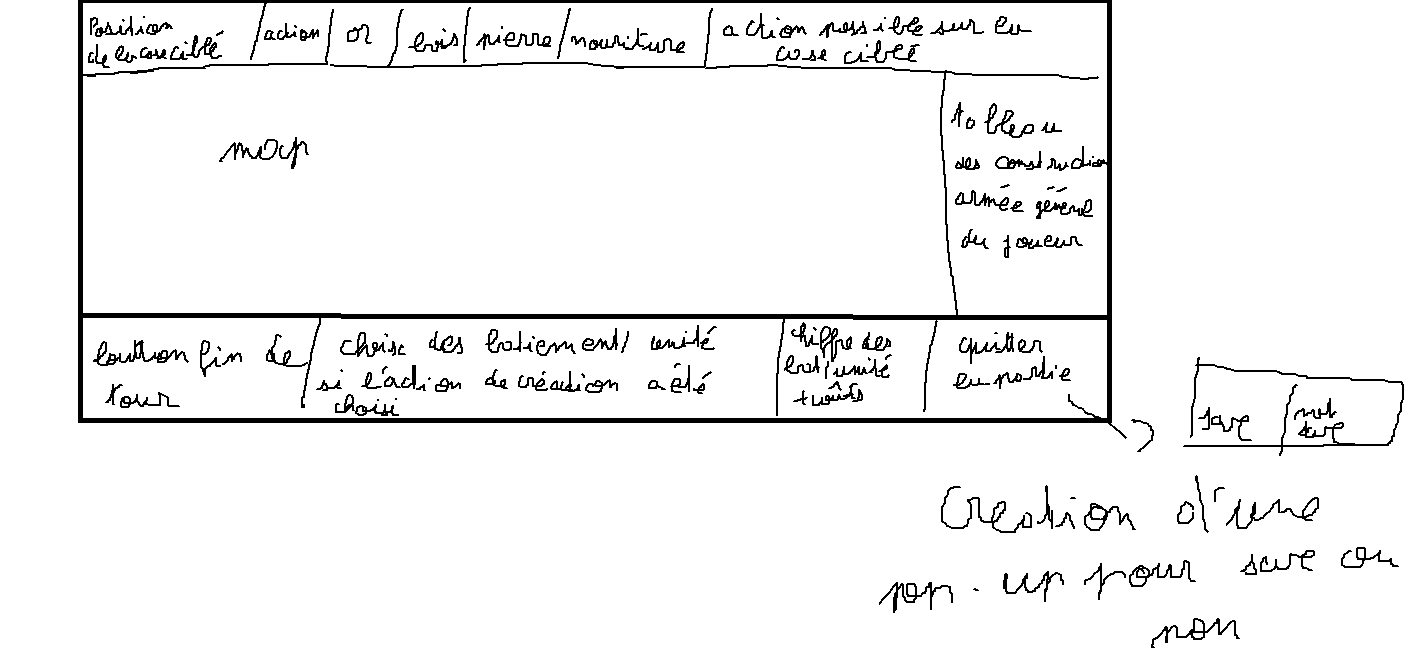 Position
de la case ciblé
action
or
bois
pierre
nouriture
action possible sur la
case ciblé
map
tableau
des construction
armée général
du joueur
boutton fin de
tour
choix des batiement/ unité
si l'action de création a été
choisi
chiffre des
bat/unité
+ coûts
quitter
la partie
save
not
save
Creation d'une
pop-up pour save ou
non